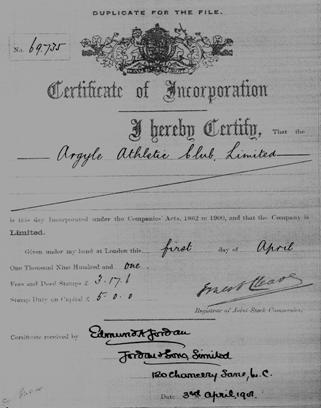 DUPLICATE FOR THE FILE.
No. 69735
Certificate of Incorporation
I hereby Certify, That the
Argyle Athletic Club, Limited
is this day Incorporated under the Companies' Acts, 1862 to 1900, and that the Company is
Limited.
Given under my hand at London this first day of April
One Thousand Nine Hundred and one.
Fees and Deed Stamps £ 3.17.6
Stamp Duty on Capital £ 5.0.0
Registrar of Joint Stock Companies.
Certificate received by Edmund A Jordan
Jordan & Sons, Limited
120 Chancery Lane, W.C.
Date 3rd April, 1901.